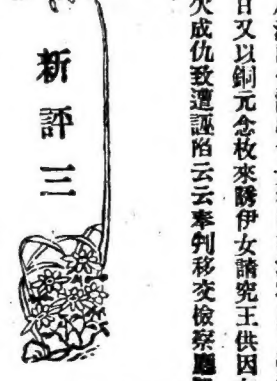 日又以銅元念枚來誘伊女請究王供因
欠成仇致遭誣陷云云奉判移交檢察廳
新評三